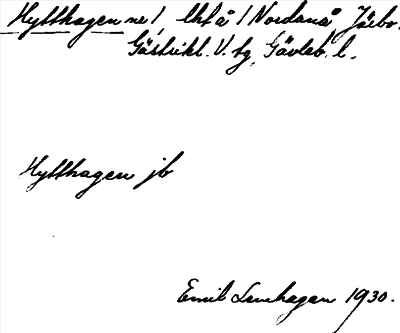 Hytthagen ne / lhf å / Nordanå Järbo.
Gästrikl. V. tg, Gävleb. l.
Hytthagen jb
Emil Lenhagen 1930.